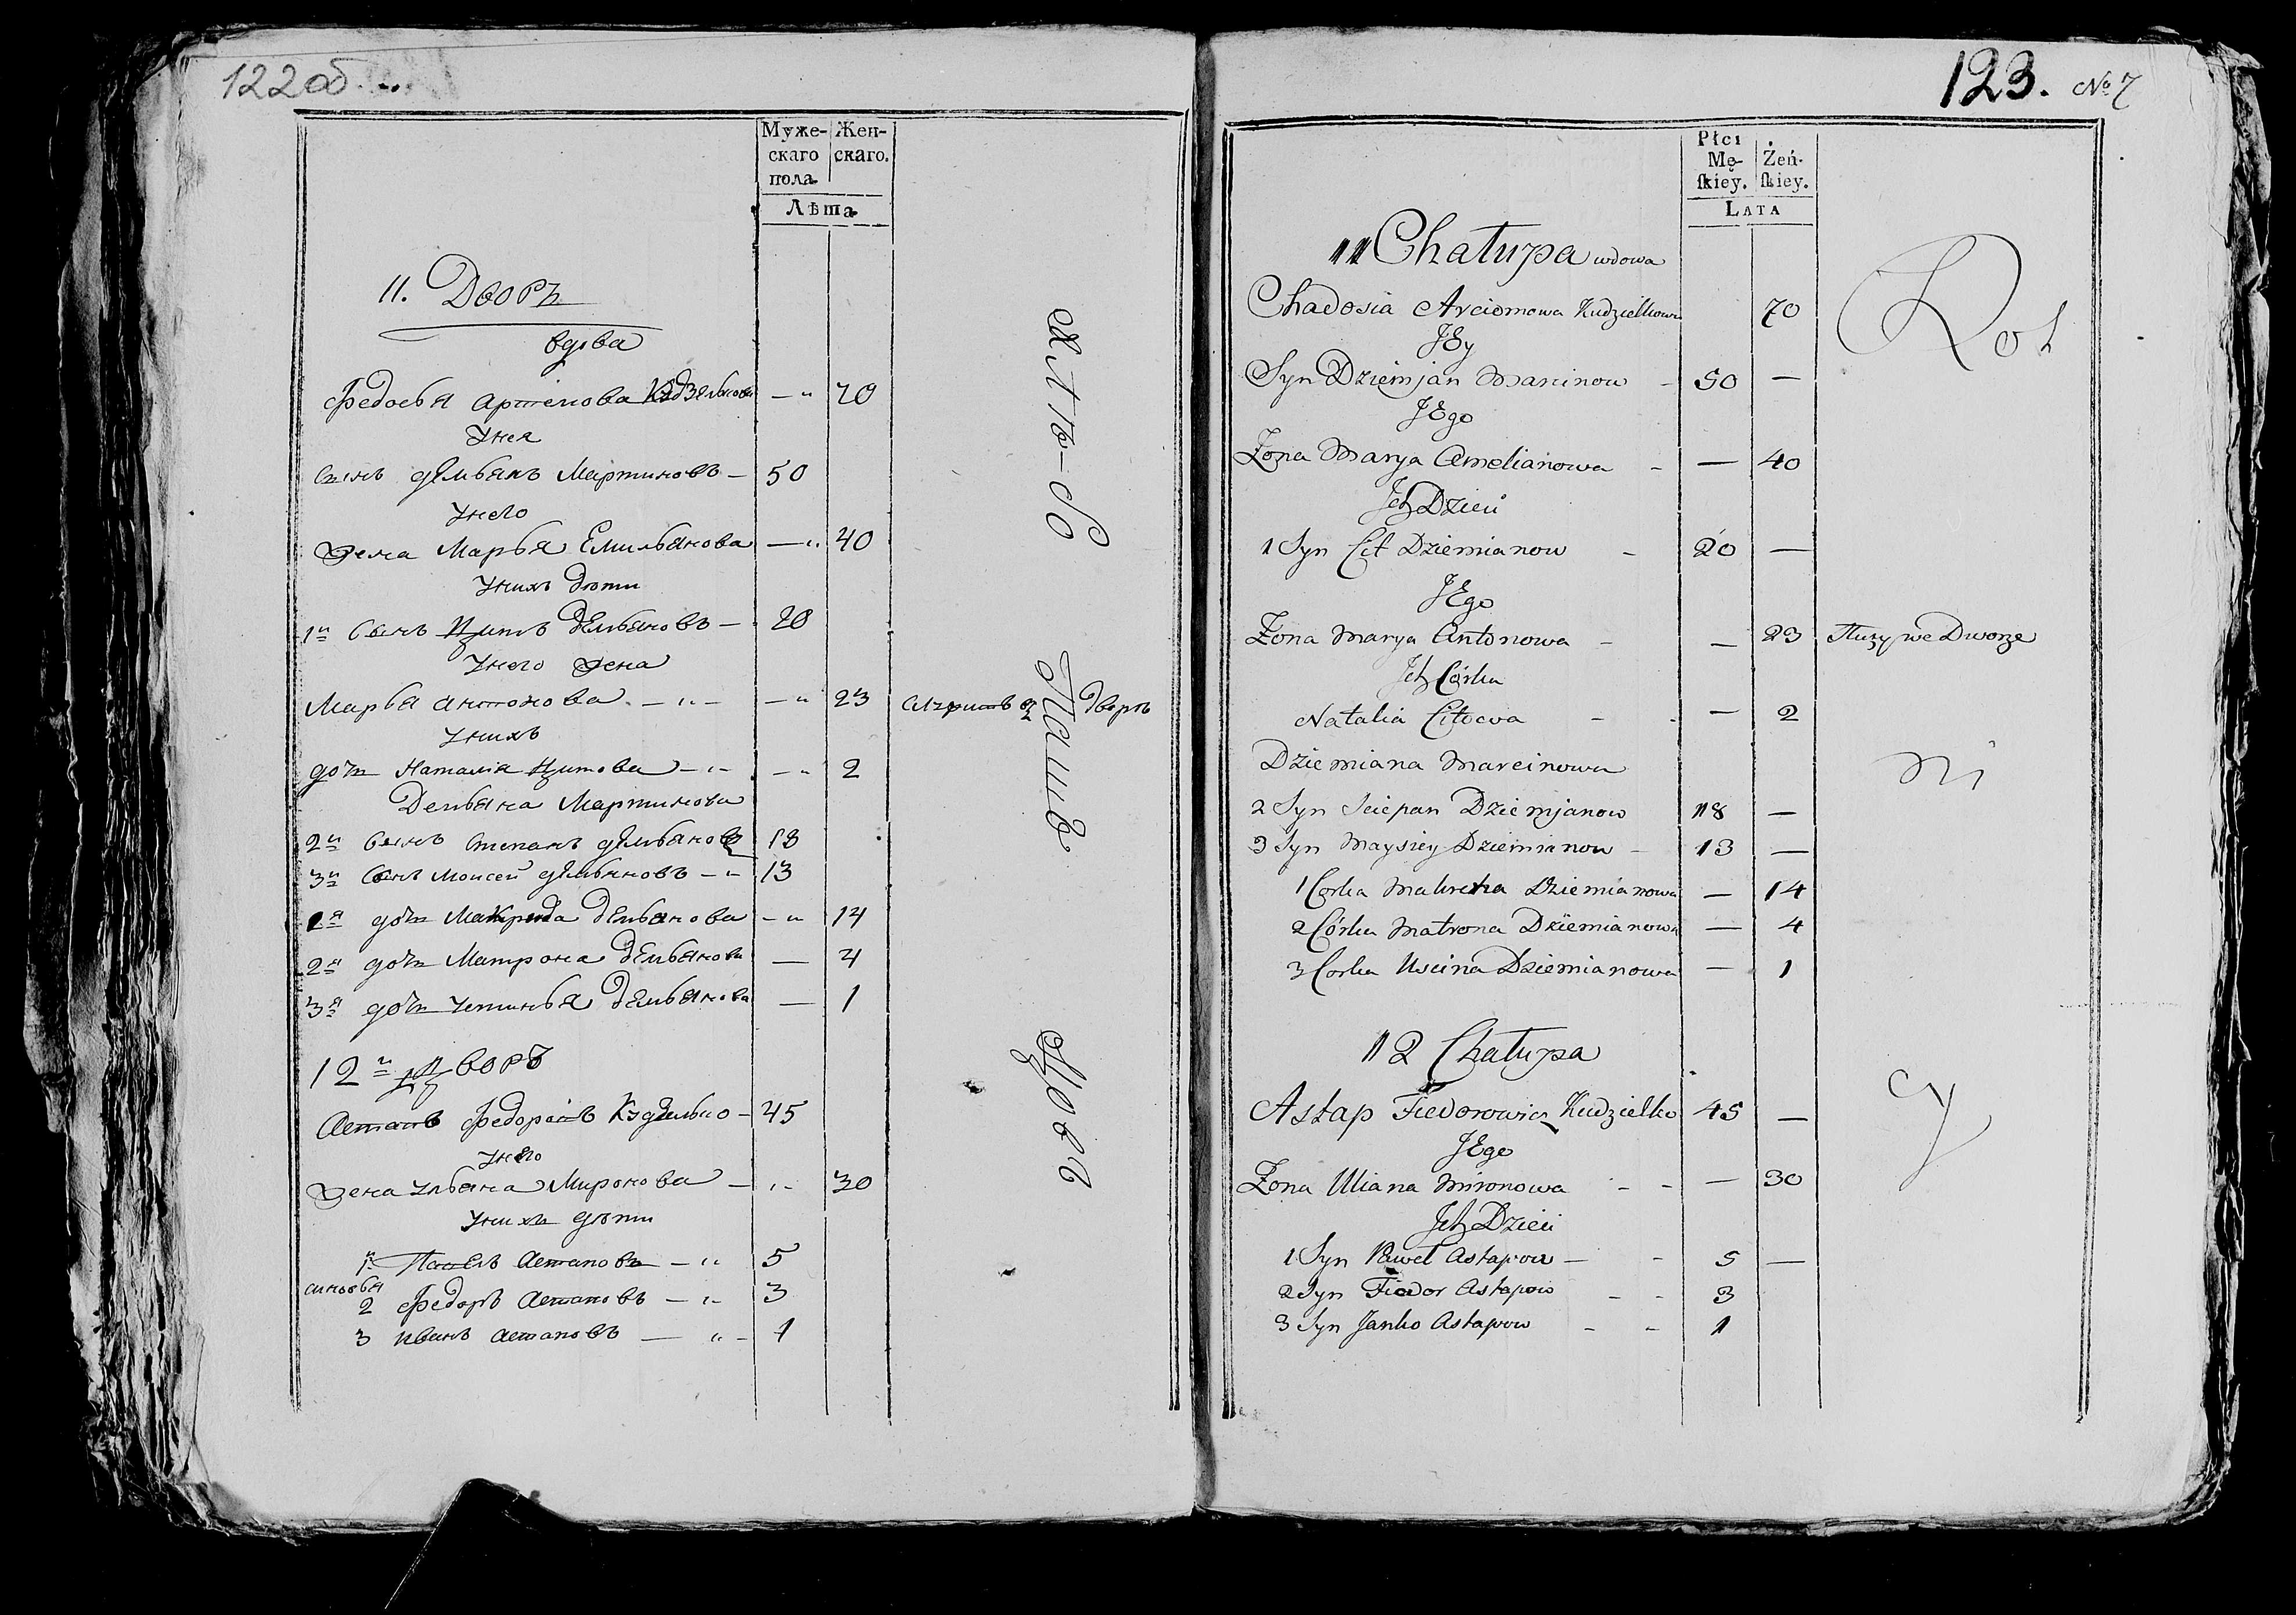 122об.
Муже-скаго пола. Жен-скаго.
Лѣта
11. Дворъ
вдова
Федосья Артемова Кудзелькова — 70
У нея
сынъ Демьянъ Мартиновъ — 50
У него
жена Марья Емильянова — 40
У нихъ дѣти
1й сынъ Цитъ Демьяновъ — 20
У него жена
Марья Антонова — 23 служитъ въ дворѣ
У нихъ
дочь Наталия Цитова — 2
Демьяна Мартинова
2й сынъ Степанъ Демьяновъ 18
3й сынъ Моисей Демьяновъ — 13
1я дочь Макрида Демьянова — 14
2я дочь Матрона Демьянова — 4
3я дочь Устинья Демьянова — 1
12й Дворъ
Астапъ Федоровъ Кудзелько — 45
У него
жена Ульяна Миронова — 30
У нихъ дѣти
1й Павелъ Астаповъ — 5
сыновья
2 Федоръ Астаповъ — 3
3 Иванъ Астаповъ — 1
123. No 7
Płci Mę-ſkiey. Żeń-ſkiey.
LATA
11 Chałupa wdowa
Chadosia Arciomowa Kudzielkowa 70
JEy
Syn Dziemjan Marcinow - 50 —
JEgo
Żona Marya Amelianowa - — 40
Jch Dzieci
1 Syn Cit Dziemianow - 20 —
JEgo
Żona Marya Antonowa - — 23 Służy we Dworze
Jch Córka
Natalia Citowa - - — 2
Dziemiana Marcinowa
2 Syn Sciepan Dziemjanow 18 —
3 Syn Maysiey Dziemianow - 13 —
1 Corka Makreta Dziemianowa — 14
2 Córka Matrona Dziemianowa — 4
3 Corka Uscina Dziemianowa — 1
12 Chałupa
Astap Fiedorowicz Kudzielko 45 —
JEgo
Żona Uliana Mironowa - - — 30
Jch Dzieci
1 Syn Paweł Astapow — - 5 —
2 Syn Fiodor Astapow - - 3
3 Syn Janko Astapow - - 1
Rot
mi